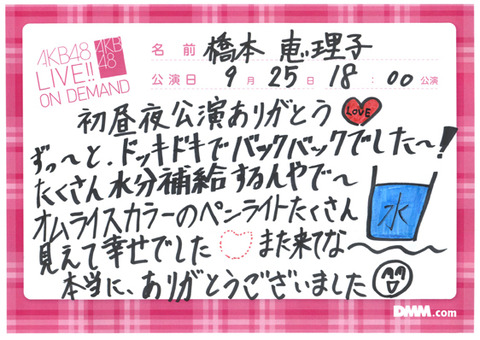 AKB48
LIVE!!
ON DEMAND
AKB
48
名前 橋本 恵理子
公演日 9月25日 18:00公演
初昼夜公演ありがとう LOVE
ずっ〜と、ドッキドキでバックバックでした〜!
たくさん水分補給するんやで〜
水
オムライスカラーのペンライトたくさん
見えて幸せでした また来てな〜
本当に、ありがとうございました
DMM.com